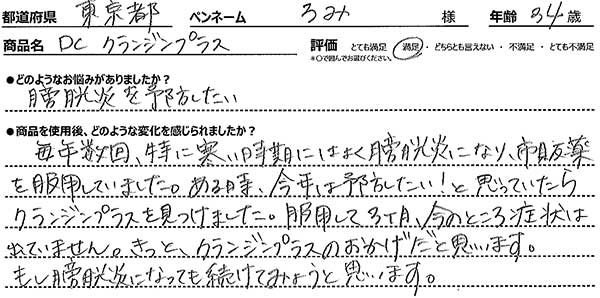 都道府県 東京都 ペンネーム るみ 様 年齢 34 歳
商品名 DC クランジンプラス 評価 とても満足・満足・どちらとも言えない・不満足・とても不満足
*○で囲んでお選びください。
●どのようなお悩みがありましたか?
膀胱炎を予防したい
●商品を使用後、どのような変化を感じられましたか?
毎年数回、特に寒い時期にはよく膀胱炎になり、市販薬
を服用していました。ある時、今年は予防したい!と思っていたら
クランジンプラスを見つけました。服用して3ヶ月、今のところ症状は
出ていません。きっと、クランジンプラスのおかげだと思います。
もし膀胱炎になっても続けてみようと思います。